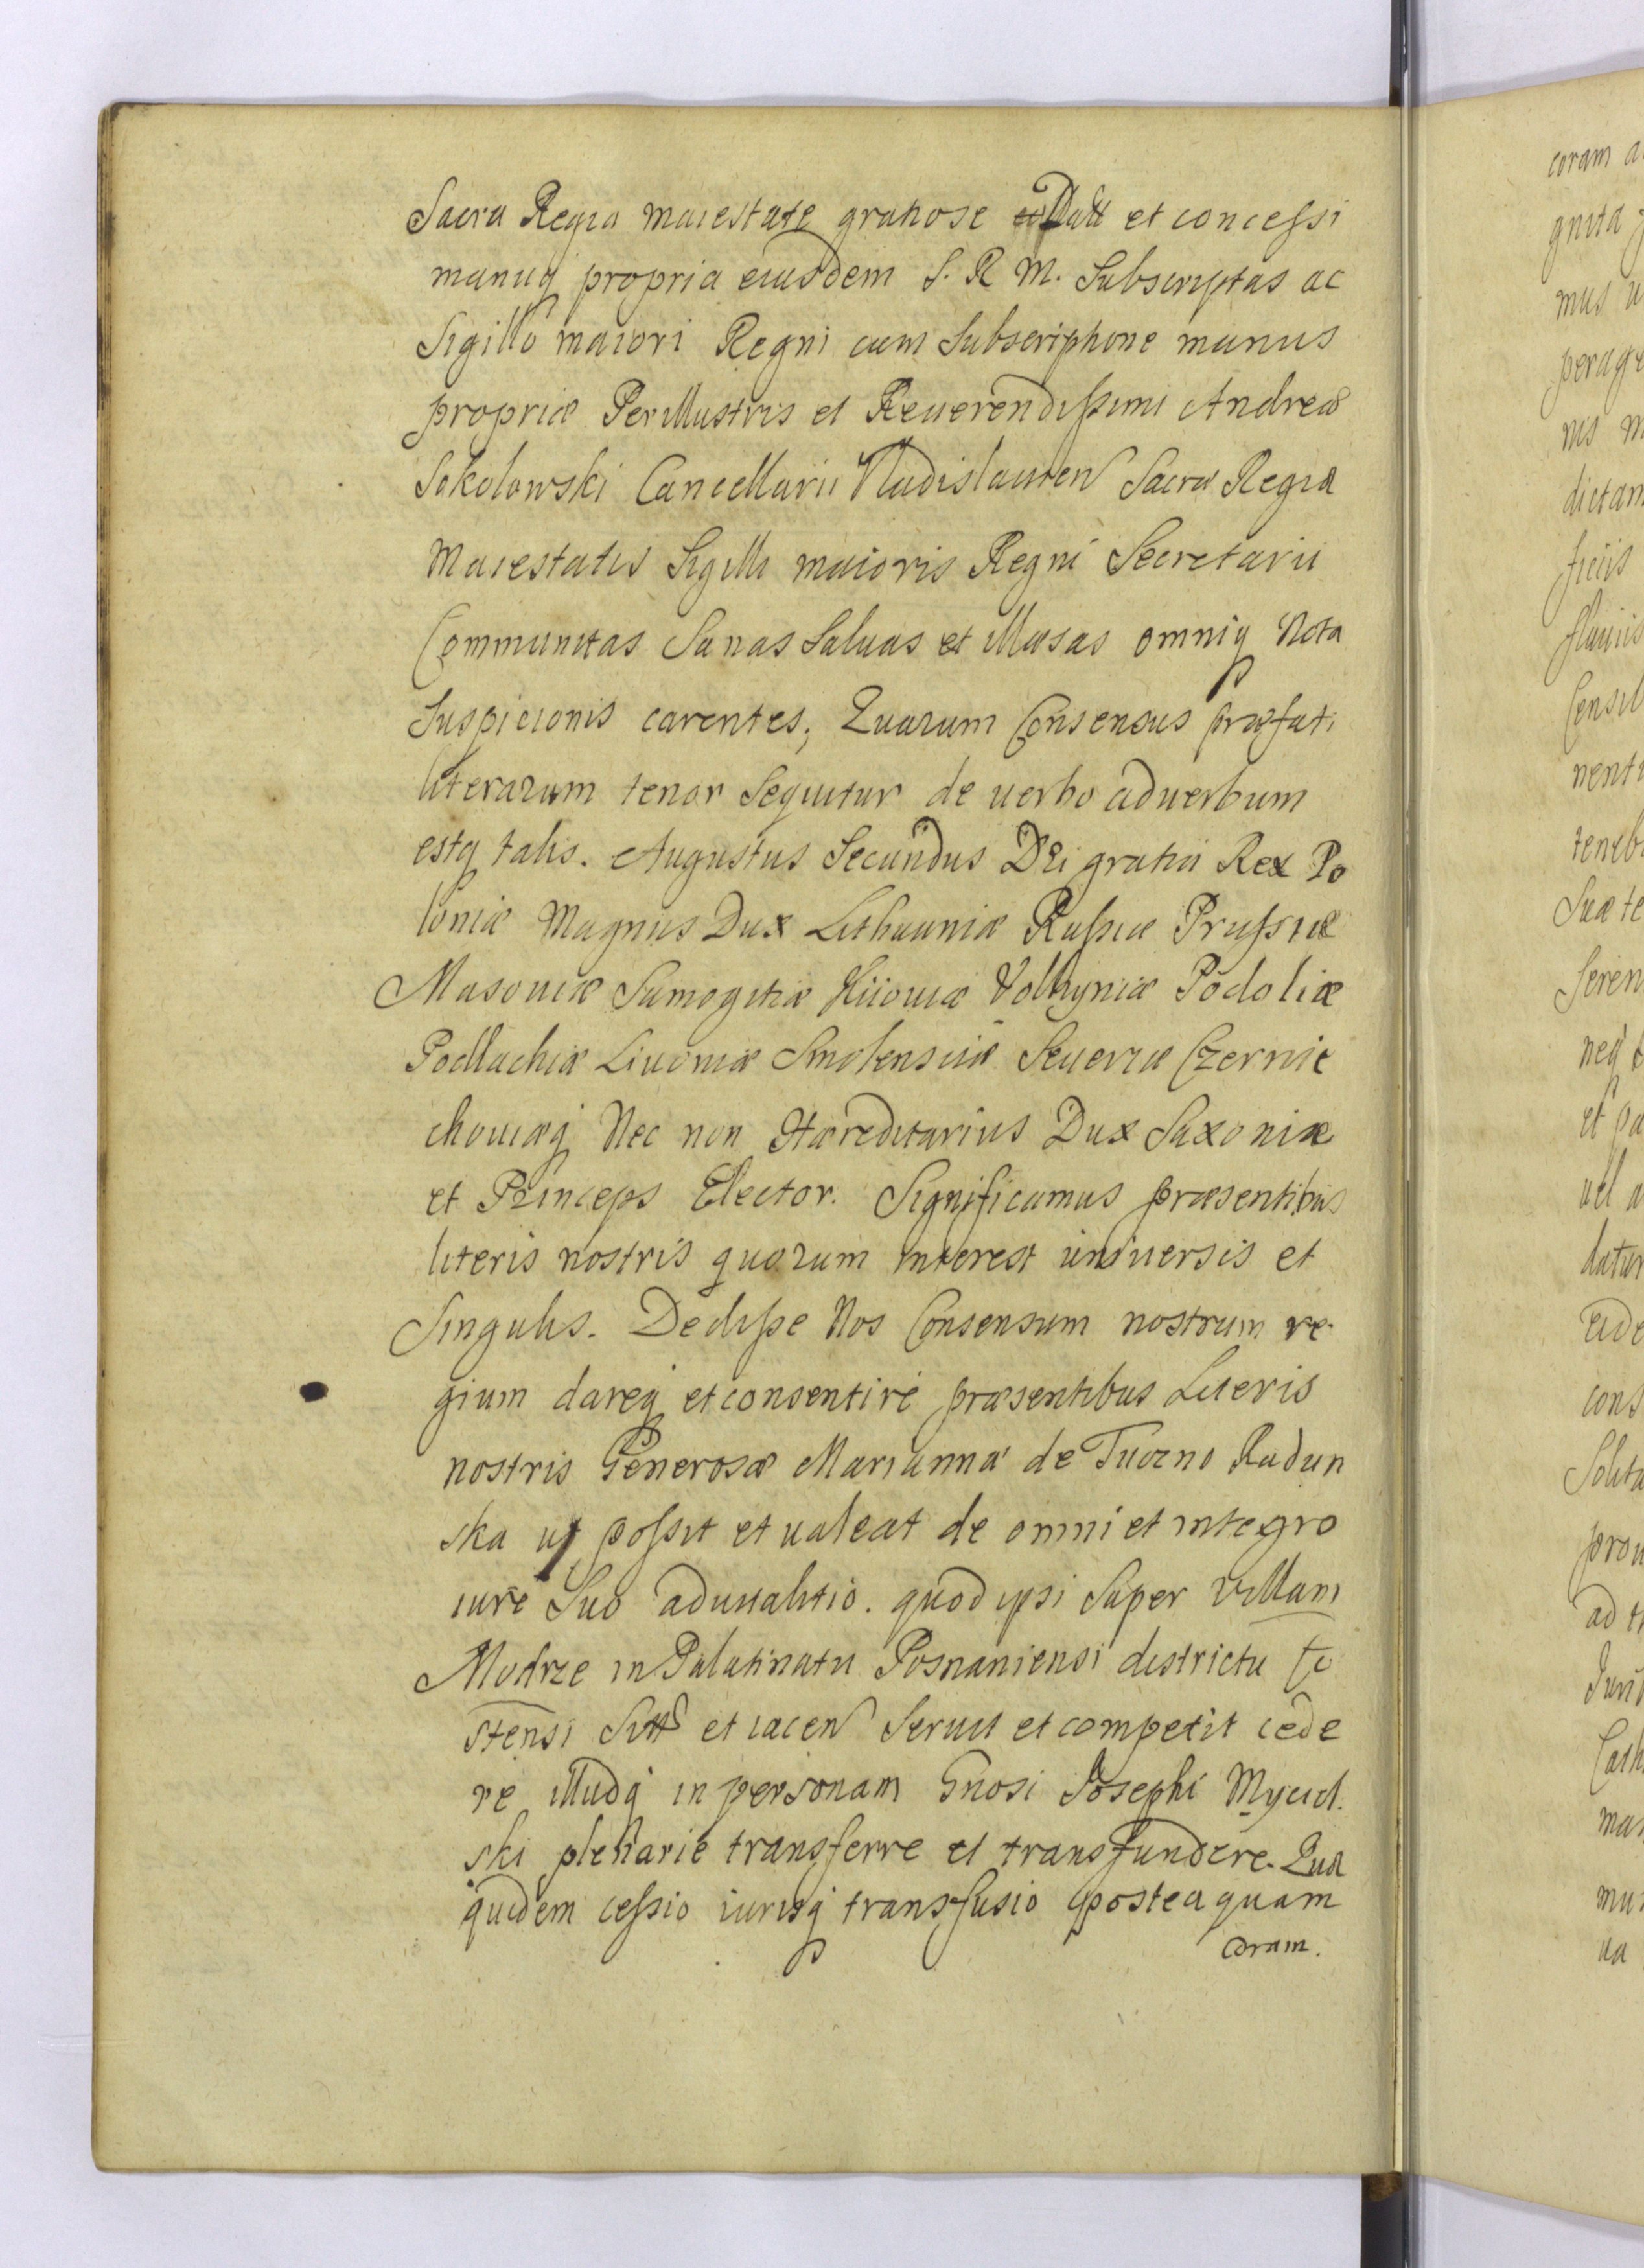 Sacra Regia maiestate gratiose Datt et concessi
manuq propria eiusdem S. R M. Subscriptas ac
Sigillo maiori Regni cum Subscriptione manus
propriæ Perillustris et Reuerendissimi Andreæ
Sokolowski Cancellarii Vladislauien Sacræ Regia
Maiestatis Sigilli maioris Regni Secretarii
Communitas Sanas Saluas et illæsas omniq Nota
Suspicionis carentes; Quarum Consensus præfati
literarum tenor Sequitur de uerbo aduerbum
estq talis. Augustus Secundus Dei gratia Rex Po
loniæ Magnus Dux Lithuaniæ Russiæ Prussiæ
Masouiæ Samogitiæ Kiiouiæ Volhyniæ Podoliæ
Podlachiæ Liuoniæ Smolensciæ Seueriæ Czernie
chouiæq Nec non Hæreditarius Dux Saxoniæ
et Princeps Elector. Significamus præsentibus
literis nostris quorum interest uniuersis et
Singulis. Dedisse Nos Consensum nostrum re
gium dareq et consentire præsentibus Literis
nostris Generosæ Marianna de Tworno Radun
ska ut possit et ualeat de omni et integro
iure Suo aduitalitio. quod ipsi Super Villam
Modrze in Palatinatu Posnaniensi districtu Co
stensi Sitt et iacen Seruit et competit cede
re illudq in personam Gnosi Josephi Myciel.
ski plenarie transferre et transfundere. Qua
quidem cessio iurisq transfusio posteaquam
coram.
coram a
gnita
mus u
perage
nis m
dictam
ficiis
fluuiis
Censi
nenti
teneb
Suæ te
Seren
neq
et pa
uel a
datur
eide
cons
Solita
prou
ad t
Juri
Cath
ma
mu
ua